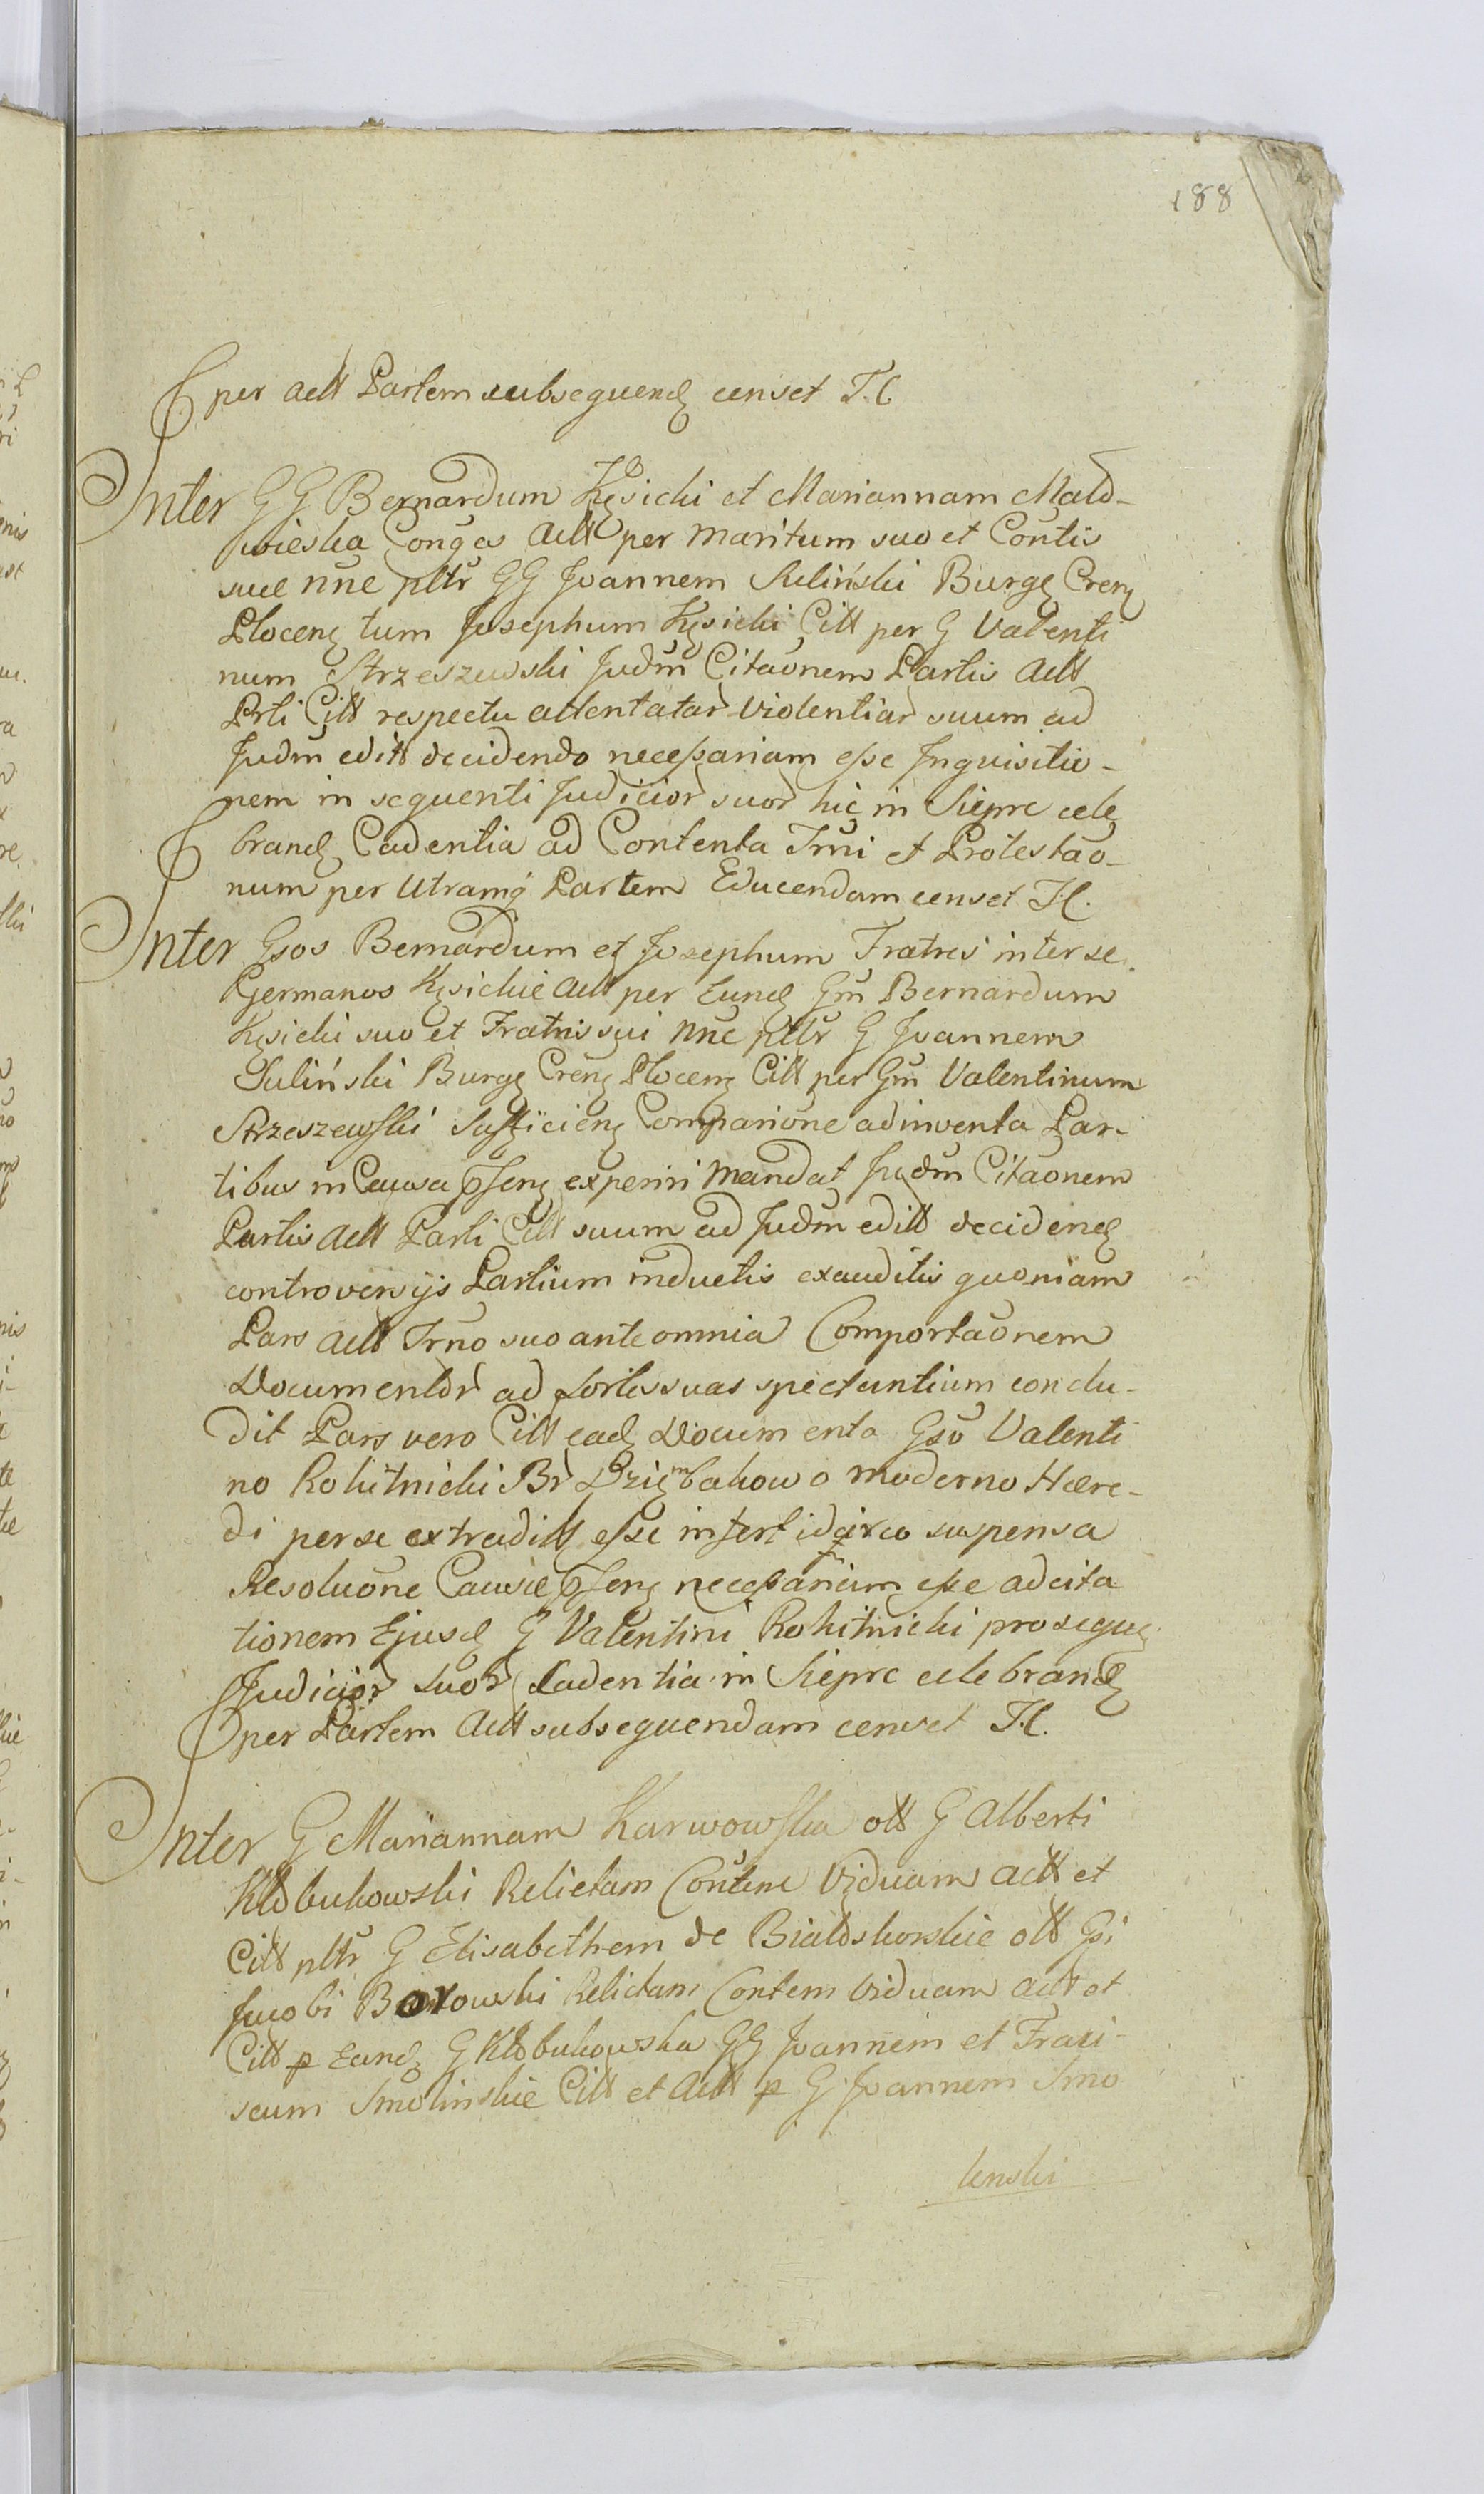 188
per actt Partem subsequend censet T. C
Inter G G Bernardum Kęsicki et Mariannam Mało-
wieska Conges Actt per Maritum suo et Contis
suæ nne pltr GG Joannem Suliński Burg Cren
Plocen tum Josephum Kęsicki Citt per G Valenti
num Strzeszewski Judm Citaonem Partis Actt
Prti Citt respectu attentatar violentiar suum ad
Judm editt decidendo necessariam esse Inquisitio-
nem in sequenti Judicior suor hic in Sieprc cele
brand Cadentia ad Contenta Trni et Protestao-
num per Utramq Partem Educendam censet T C.
Inter Gsos Bernardum et Josephum Fratres inter se
Germanos Kęsickie Actt per Eund Gm Bernardum
Kęsicki suo et Fratris sui nne pltr G Joannem
Suliński Burg Cren Plocen Citt per Gm Valentinum
Strzeszewski Sufficien Comparione adinventa Par-
tibus in Causa pſen experiri mandat Judm Citaonem
Partis Actt Parti Citt suum ad Judm editt decidend
controversijs Partium inductis exauditis quoniam
Pars Actt Trno suo ante omnia Comportaonem
Documentor ad sortes suas spectantium conclu-
dit Pars vero Citt ead Documenta Gso Valenti
no Rokitnicki Br Dziembakowo moderno Hære-
di per se extraditt esse infert idcirco suspensa
Resoluone Causæ pſen necessarium esse adcita
tionem Ejusd G Valentini Rokitnicki pro sequ
Judicior suor Cadentia in Sieprc celebrand
per Partem Actt subsequendam censet T. C.
Inter G Mariannam Karwowska ott G Alberti
Kłobukowski Relictam Contem Viduam Actt et
Citt pltr G Elisabetham de Białoskorskie ott Gsi
Jacobi Borowski Relictam Contem Viduam Actt et
Citt p Eand G Kłobukowska GG Joannem et Franci-
scum Smolinskie Citt et Actt p G Joannem Smo
lenski